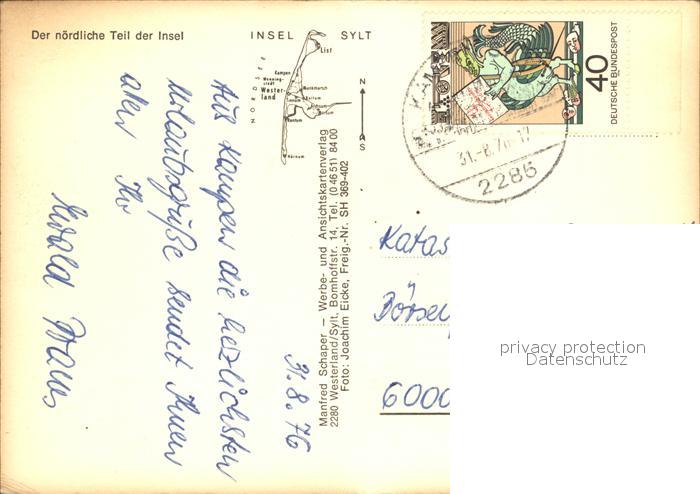 Der nördliche Teil der Insel
INSEL SYLT
List
Kampen
Wenning-
stedt
Wester-
land
Munkmarsch
Keitum
Rantum
Hörnum
N
S
40
DEUTSCHE BUNDESPOST
31.-8.76-17
2286
31.8.76
Aus Kampen die herzlichsten
Urlaubsgrüße sendet Ihnen
allen Ihr
Ewald
Manfred Schaper – Werbe- und Ansichtskartenverlag
2280 Westerland/Sylt, Bomhoffstr. 14, Tel. (0 46 51) 84 00
Foto: Joachim Eicke, Freig.-Nr. SH 369-402
Katas
Börsen
6000
privacy protection
Datenschutz